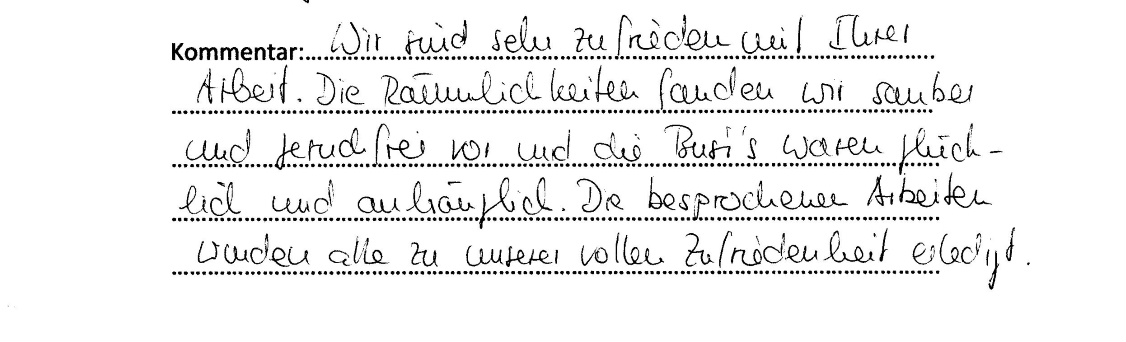 Kommentar: Wir sind sehr zufrieden mit Ihrer
Arbeit. Die Räumlichkeiten fanden wir sauber
und geruchfrei vor und die Busi's waren glück-
lich und anhänglich. Die besprochenen Arbeiten
wurden alle zu unserer vollen Zufriedenheit erledigt.